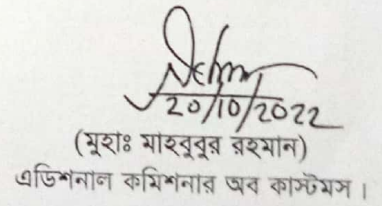 20/10/2022
(মুহাঃ মাহবুবুর রহমান)
এডিশনাল কমিশনার অব কাস্টমস।